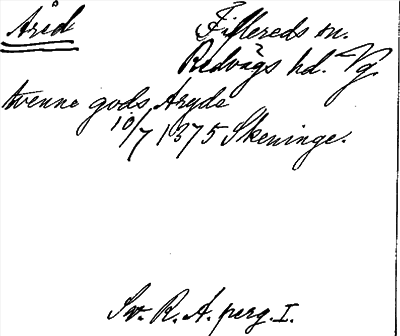 Åröd
Fiflereds sn.
Redvägs hd. Vg.
tvenne gods, Aryde
10/7 1375 Skeninge.
Sv. R. A. perg. I.